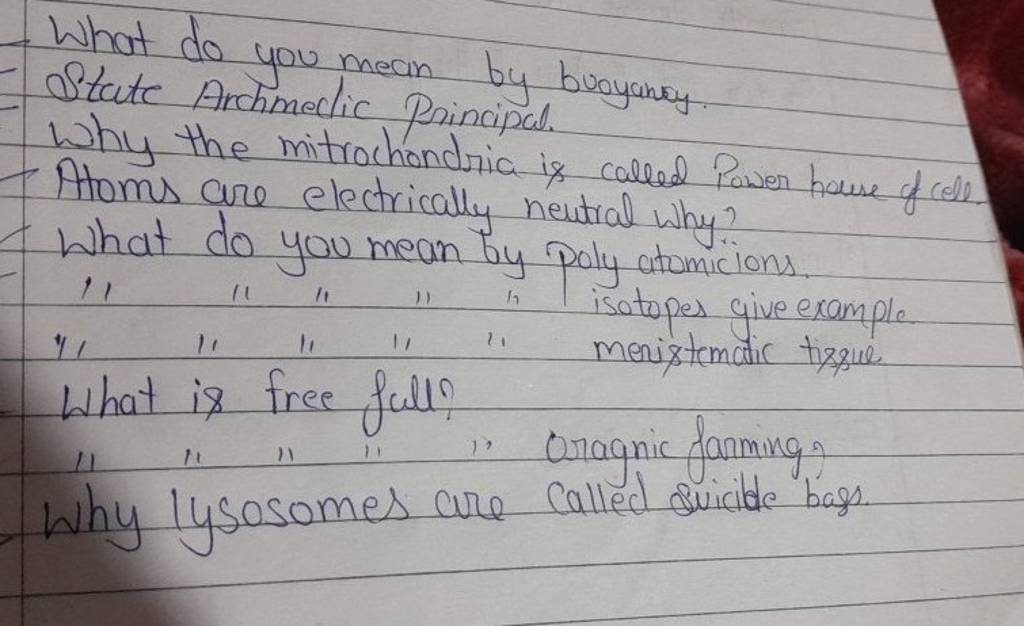 What do you mean by buoyancy.
State Archmedic Principal.
Why the mitrochondria is called Power house of cell.
Atoms are electrically neutral why?
What do you mean by poly atomic ions.
" " " " " isotopes give example
" " " " " meristematic tissue
What is free fall?
" " " " " Oragnic farming?
Why lysosomes are called suicide bags.